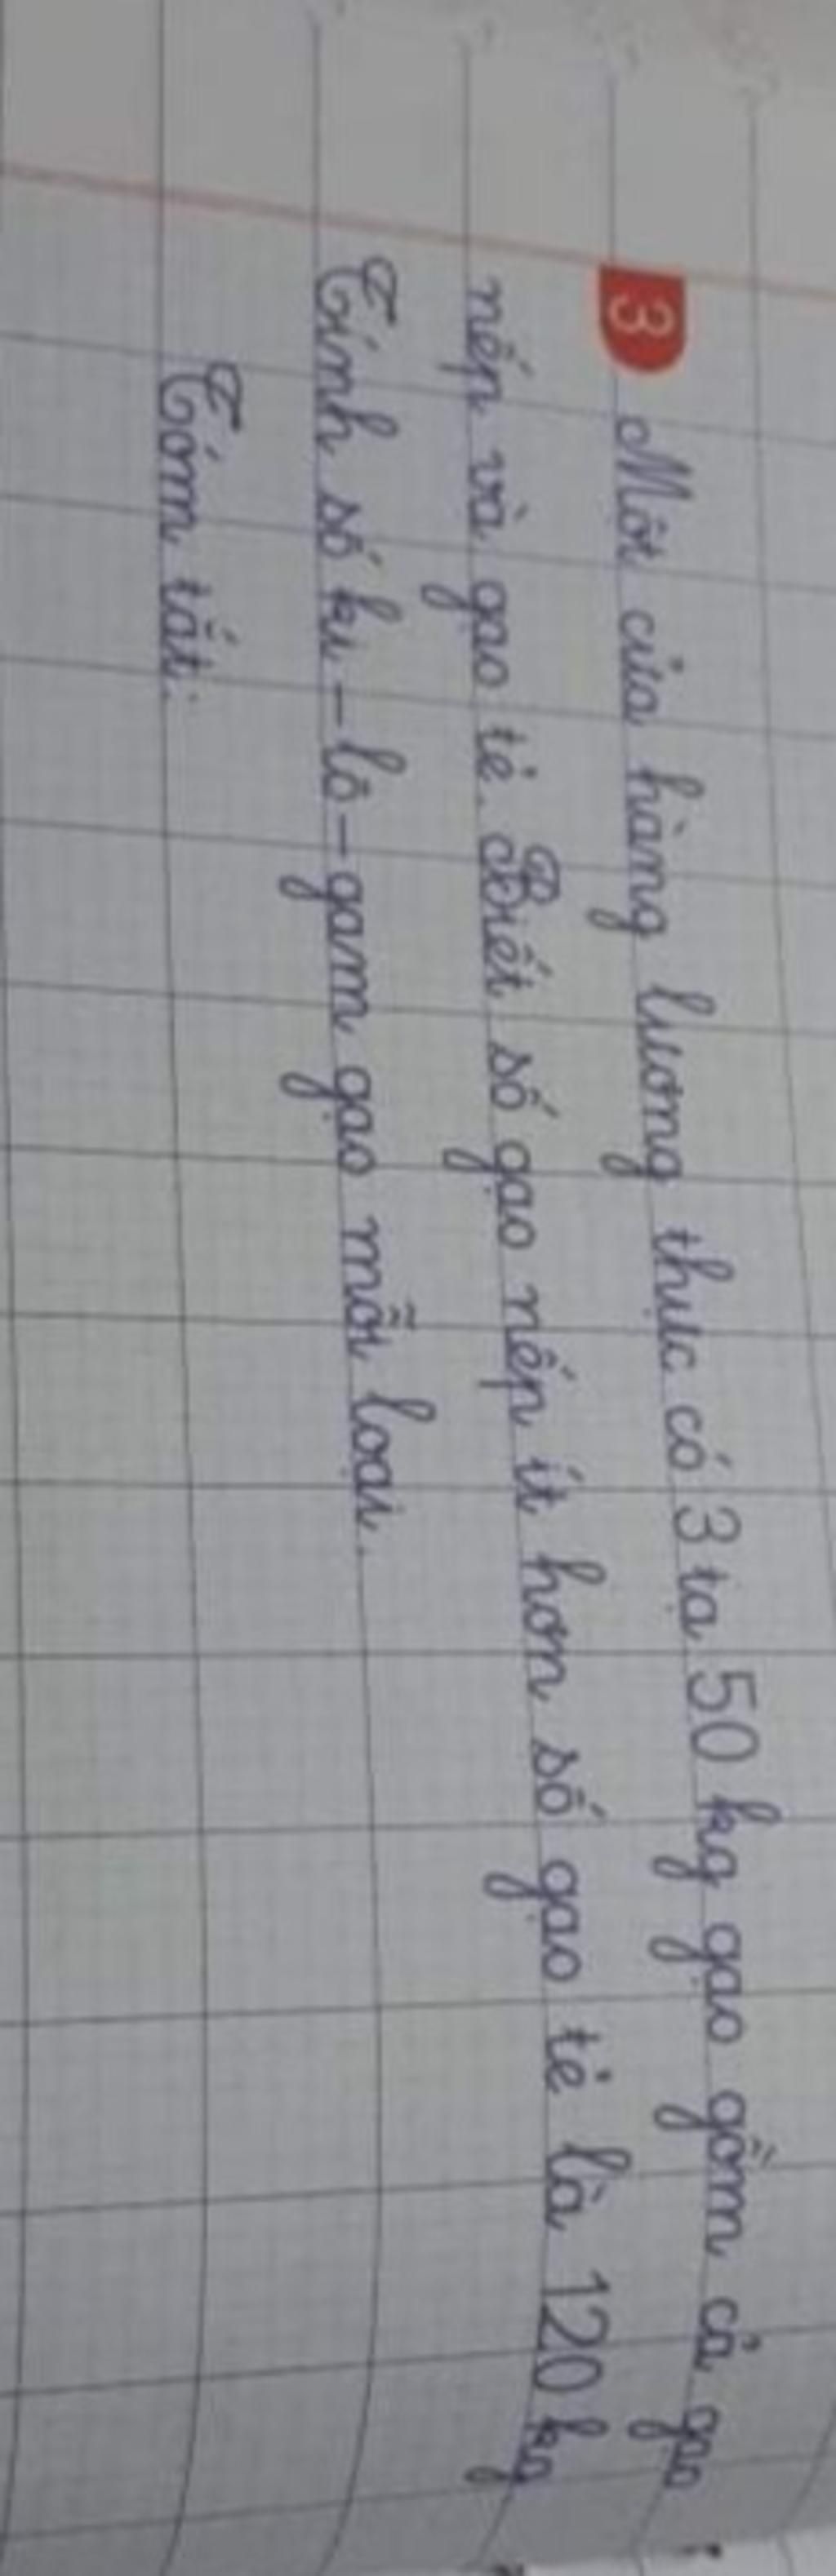 3 Một cửa hàng lương thực có 3 tạ 50 kg gạo gồm cả gạo
nếp và gạo tẻ. Biết số gạo nếp ít hơn số gạo tẻ là 120 kg
Tính số ki-lô-gam gạo mỗi loại.
Tóm tắt: